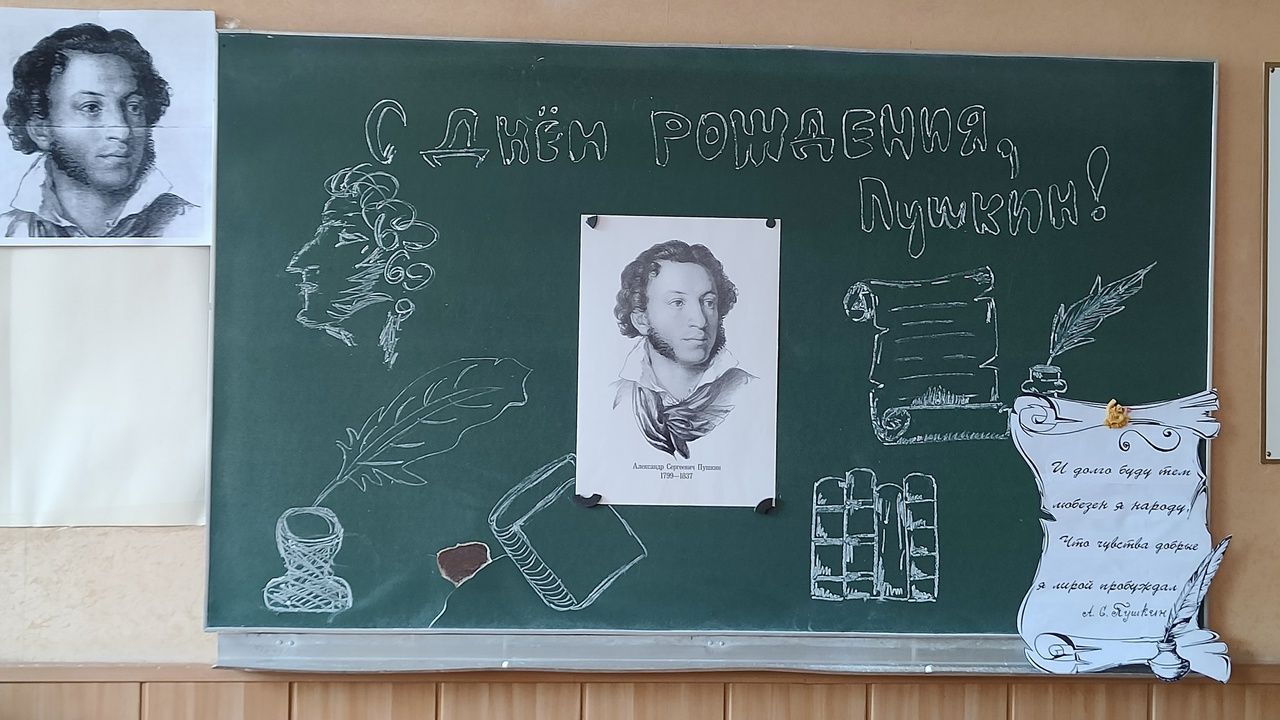 С ДНЁМ РОЖДЕНИЯ,
Пушкин!
Александр Сергеевич Пушкин
1799—1837
И долго буду тем
любезен я народу,
Что чувства добрые
я лирой пробуждал
А. С. Пушкин